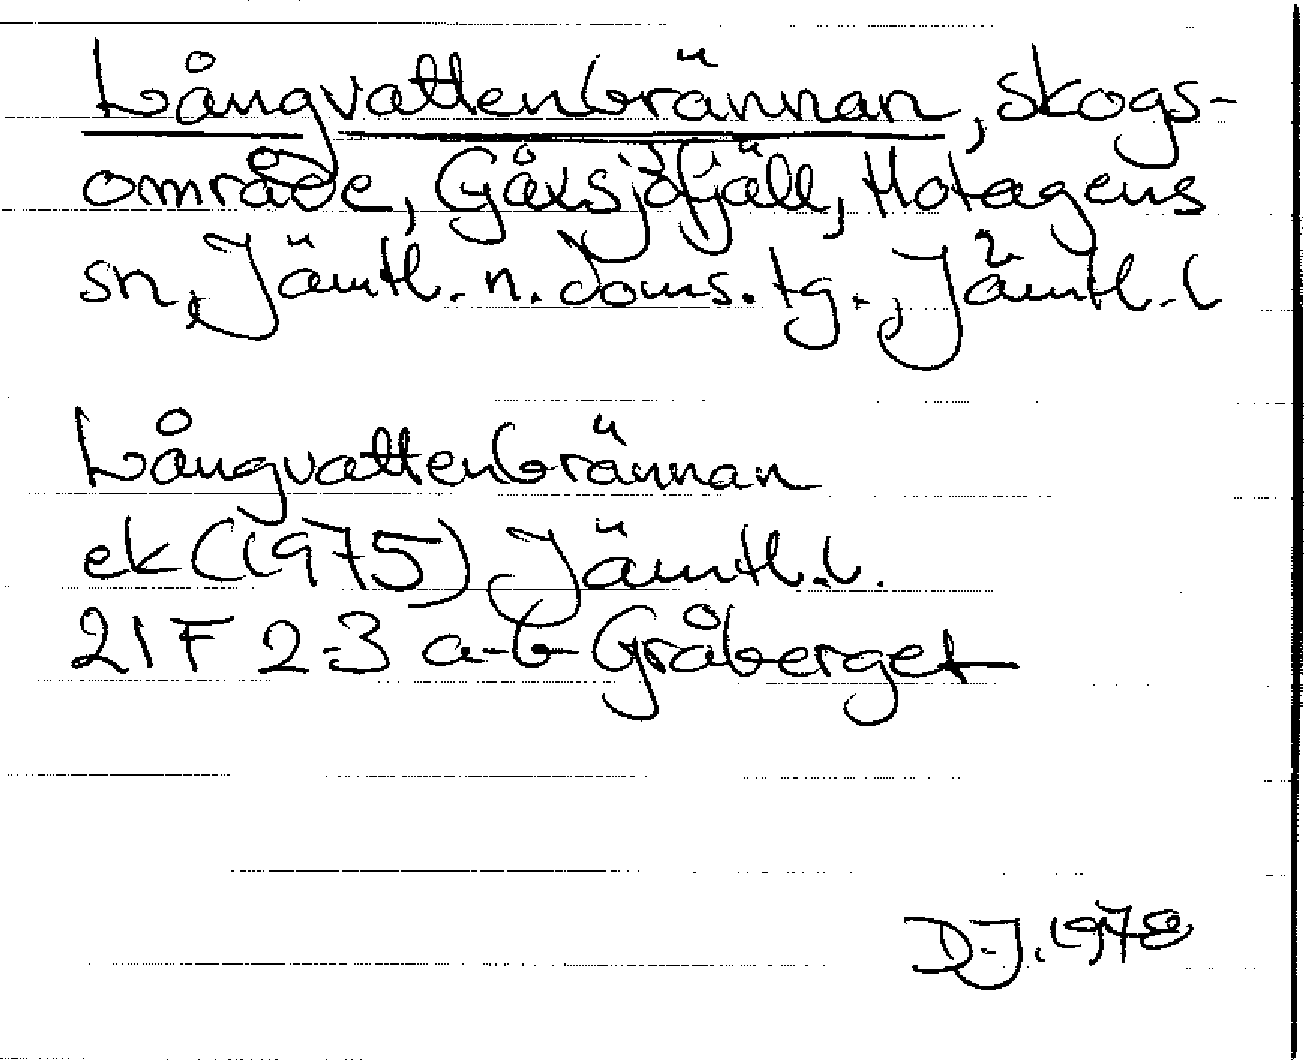 Långvattenbrännan, skogs-
område, Gåxsjöfjäll, Hotagens
sn, Jämtl. n. doms. tg., Jämtl. l
Långvattenbrännan
ek (1975) Jämtl. l.
21F 2-3 a-b Gråberget
D-J. 1978